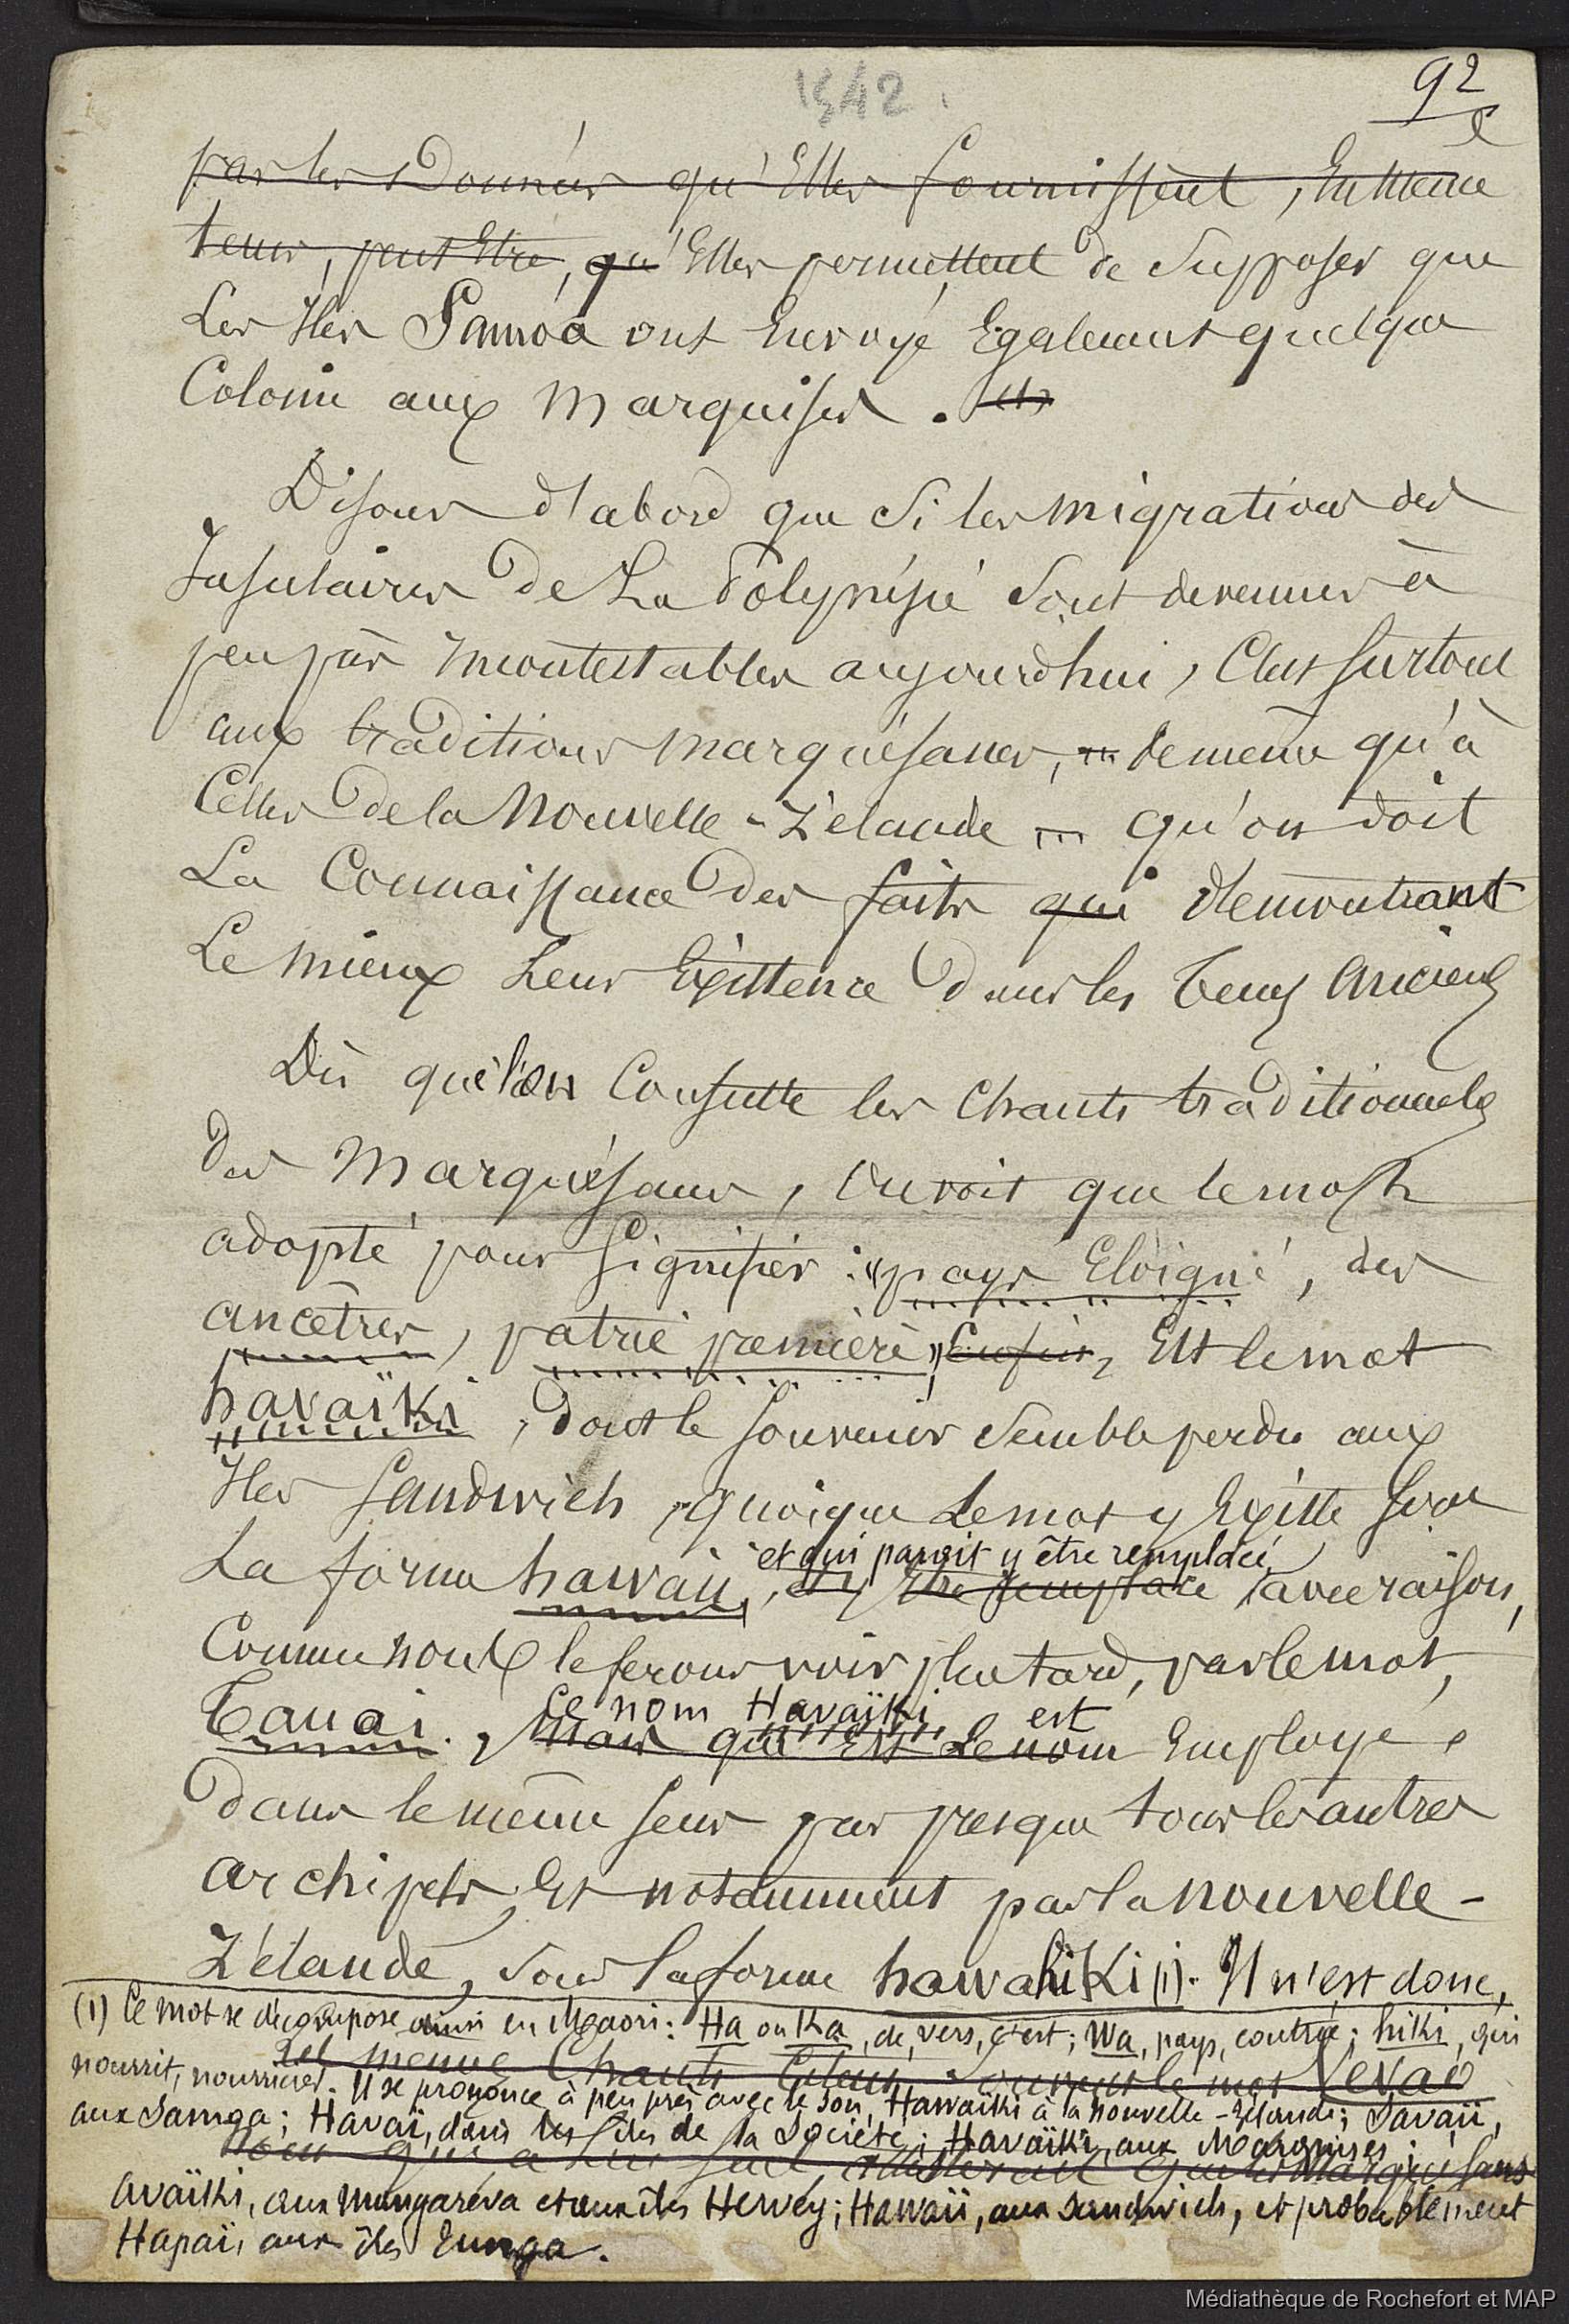 1542
92
par les Données qu'Elles fournissent, Entr'autre
teur, peut Etre, qu'Elles permettent de Supposer que
Les Iles Samoa ont Envoyé Egalement quelque
Colonie aux Marquises. (1)
Disons d'abord que Si les migrations des
Insulaires De La Polynésie Sont devenues à
peu près incontestables aujourd'hui, C'est surtout
aux traditions marquésanes, de même qu'à
Celles De la Nouvelle-Zélande qu'on doit
La Connaissance Des faits qui démontrant
Le mieux Leur Existence Dans les Tems Anciens
Dès que l'on Consulte les Chants traditionnels
Des Marquésans, On voit que le mot
adopté pour signifier : "pays Eloigné, des
ancêtres, patrie première" Enfin, Est le mot
havaïki, dont le souvenir Semble perdu aux
Iles Sandwich, quoique Le mot y Existe sous
La forme hawaii, et qui paroit y être remplacé, avec raison,
Comme nous le ferons voir plus tard, par le mot,
Tauai. Ce nom Havaïki est
Mais qui Est Le nom Employé
Dans le même sens par presque tous les autres
archipels, Et notamment par la nouvelle-
Zélande, Sous la forme hawahiki (1). Il n'est donc,
(1) Ce mot se décompose ainsi en Maori: Ha ou Ka, de, vers, c'est; Wa, pays, contrée; hiki, qui
nourrit, nourricier. Il se prononce à peu près avec le son, Hawaïki à la nouvelle-Zélande; Savaïi,
même Chants le mot Vevao
aux Samoa; Havaï, dans les îles de la Société; Havaïki, aux Marquises;
Avaïki, aux Mangareva et aux îles Hervey; Hawaïi, aux Sandwich, et probablement
Hapaï, aux îles Tunga.
Médiathèque de Rochefort et MAP